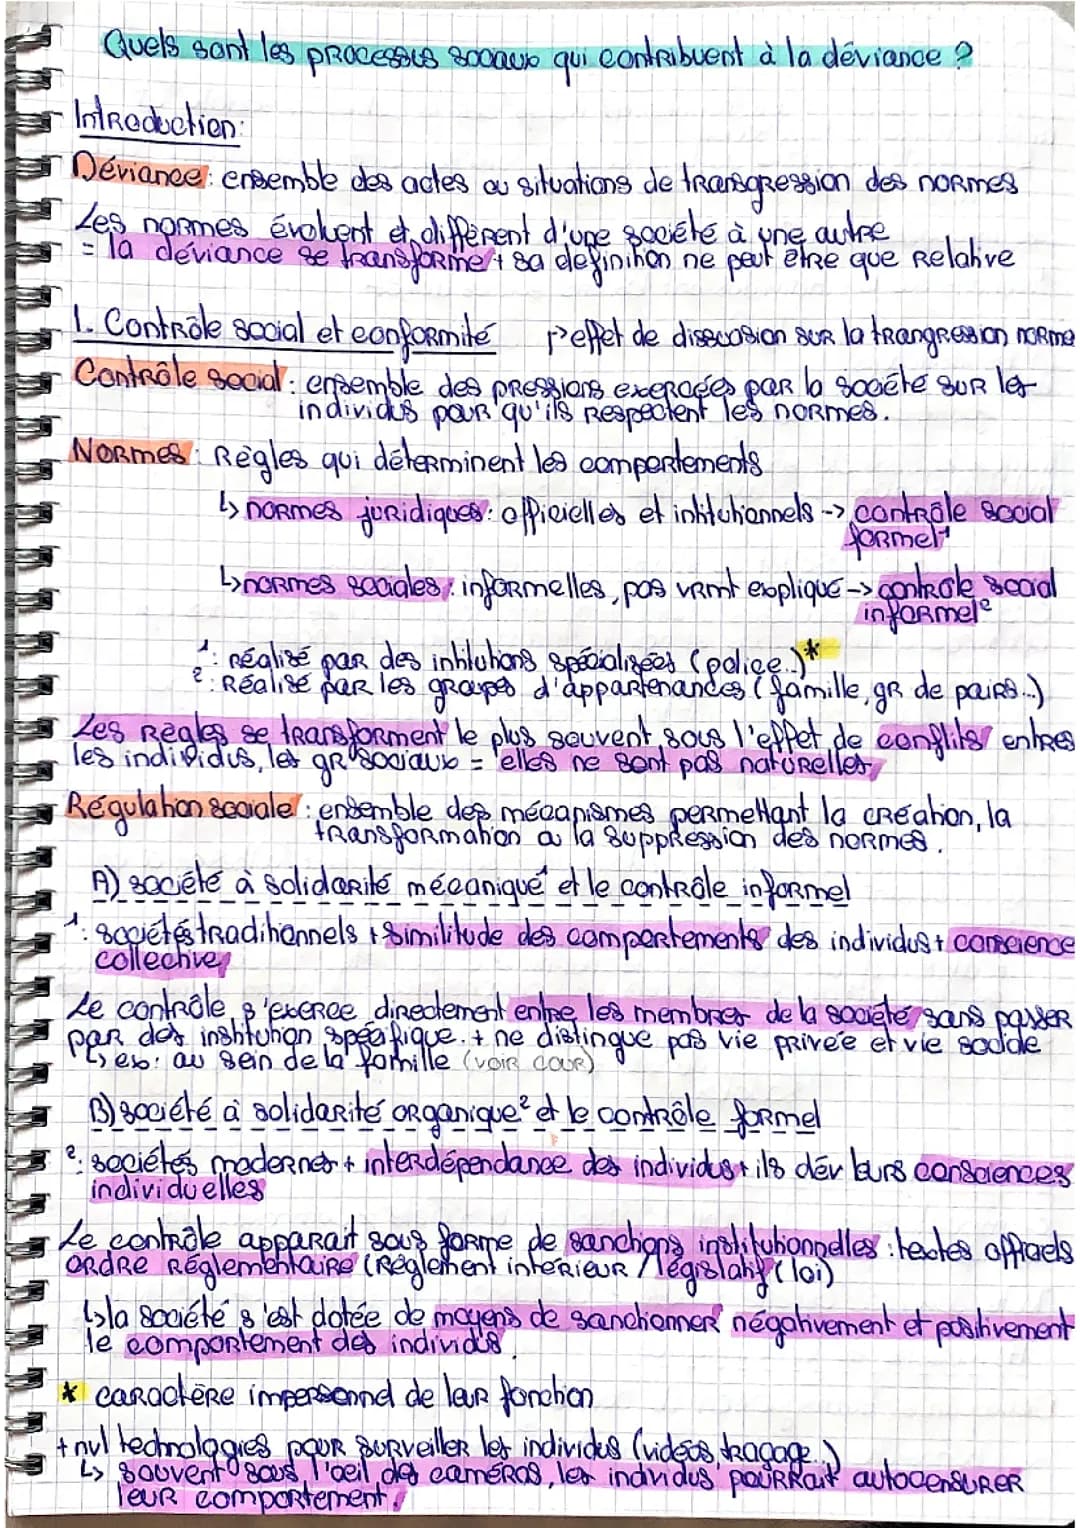 Quels sont les processus sociaux qui contribuent à la déviance ?
Introduction:
Déviance: ensemble des actes ou situations de transgression des normes
Les normes évoluent et diffèrent d'une société à une autre
= la déviance se transforme + sa definition ne peut être que relative
1. Contrôle social et conformité ↱effet de disscasion sur la trangression norme
Contrôle social: ensemble des pressions exercées par la société sur les
individus pour qu'ils respectent les normes.
Normes: Règles qui déterminent les comportements
↳ normes juridiques: officielles et intitutionnels -> contrôle social
formel¹
↳normes sociales: informelles, pas vrmt expliqué -> controle social
informel²
¹: réalisé par des intitutions spécialisées (police..)*
²: Réalisé par les groupes d'appartenances (famille, gr de pairs...)
Les règles se transforment le plus souvent sous l'effet de conflits entres
les individus, les gr sociaux = elles ne sont pas naturelles
Régulation sociale: ensemble des mécanismes permettant la création, la
transformation ou la suppression des normes.
A) société à solidarité mécanique¹ et le contrôle informel
¹: sociétés traditionnels + similitude des comportements des individus + conscience
collective
Le contrôle s'exerce directement entre les membres de la société sans passer
par des institution spécifique. + ne distingue pas vie privée et vie sociale
↳ ex: au sein de la famille (voir cour)
B) société à solidarité organique² et le contrôle formel
²: sociétés modernes + interdépendance des individus + ils dév leurs consciences
individuelles
Le contrôle apparait sous forme de sanctions institutionnelles: textes officiels
ordre réglementaire (règlement intérieur / législatif (loi)
↳la société s'est dotée de moyens de sanctionner négativement et positivement
le comportement des individus.
* caractère impersonnel de leur fonction
+ nvl technologies pour surveiller les individus (vidéos, traçage..)
↳ souvent sous l'oeil des caméras, les individus pourrait autocensurer
leur comportement.